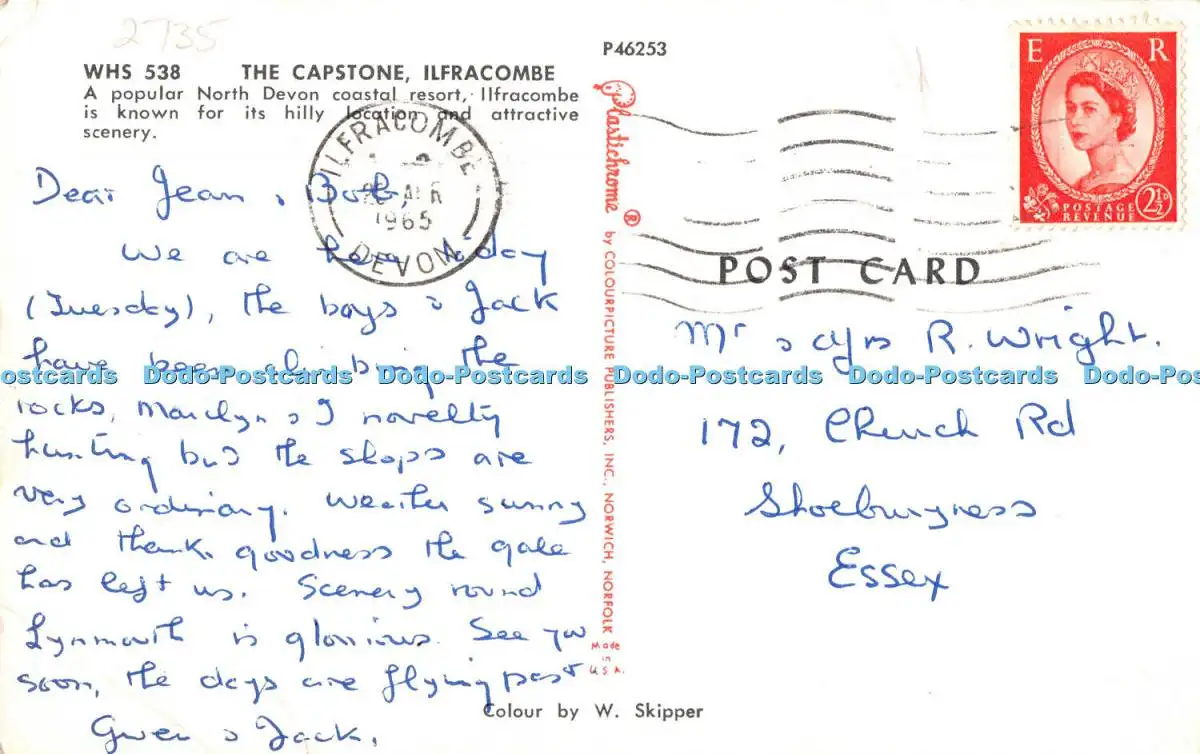 2735
WHS 538 THE CAPSTONE, ILFRACOMBE
A popular North Devon coastal resort, Ilfracombe
is known for its hilly location and attractive
scenery.
Dear Jean & Bob,
We are here today
(Tuesday), the boys & Jack
have been climbing the
rocks, Marilyn & I novelty
hunting but the shops are
very ordinary. Weather sunny
and thank goodness the gale
has left us. Scenery round
Lynmouth is glorious. See you
soon, the days are flying past
Gwen & Jack.
ILFRACOMBE
1965
DEVON
P46253
Plastichrome ® by COLOURPICTURE PUBLISHERS, INC., NORWICH, NORFOLK
Made
in
U.S.A.
Colour by W. Skipper
E R
POSTAGE
REVENUE
2½D
POST CARD
Mr & Mrs R. Wright.
172, Church Rd
Shoeburyness
Essex
Dodo-Postcards Dodo-Postcards Dodo-Postcards Dodo-Postcards Dodo-Postcards